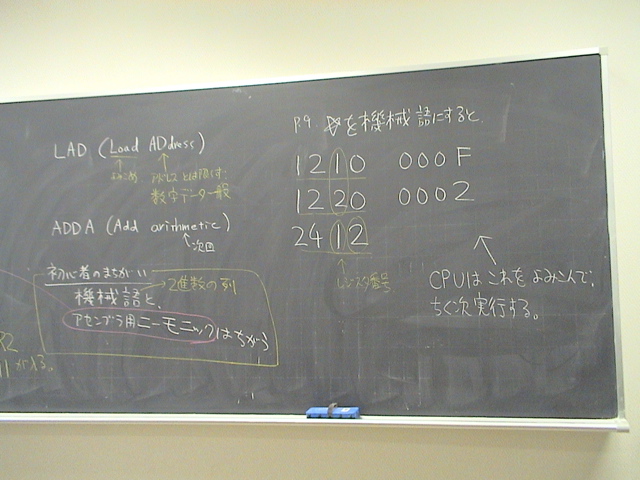 LAD (Load ADdress)
よみこめ
アドレスとは限らず
数字データ一般
ADDA (Add arithmetic)
次回
初心者のまちがい
機械語と、
2進数の列
アセンブラ用ニーモニックはちがう
がある。
P.9 を機械語にすると、
1210 000F
1220 0002
2412
レジスタ番号
CPUはこれをよみこんで、
ちく次実行する。